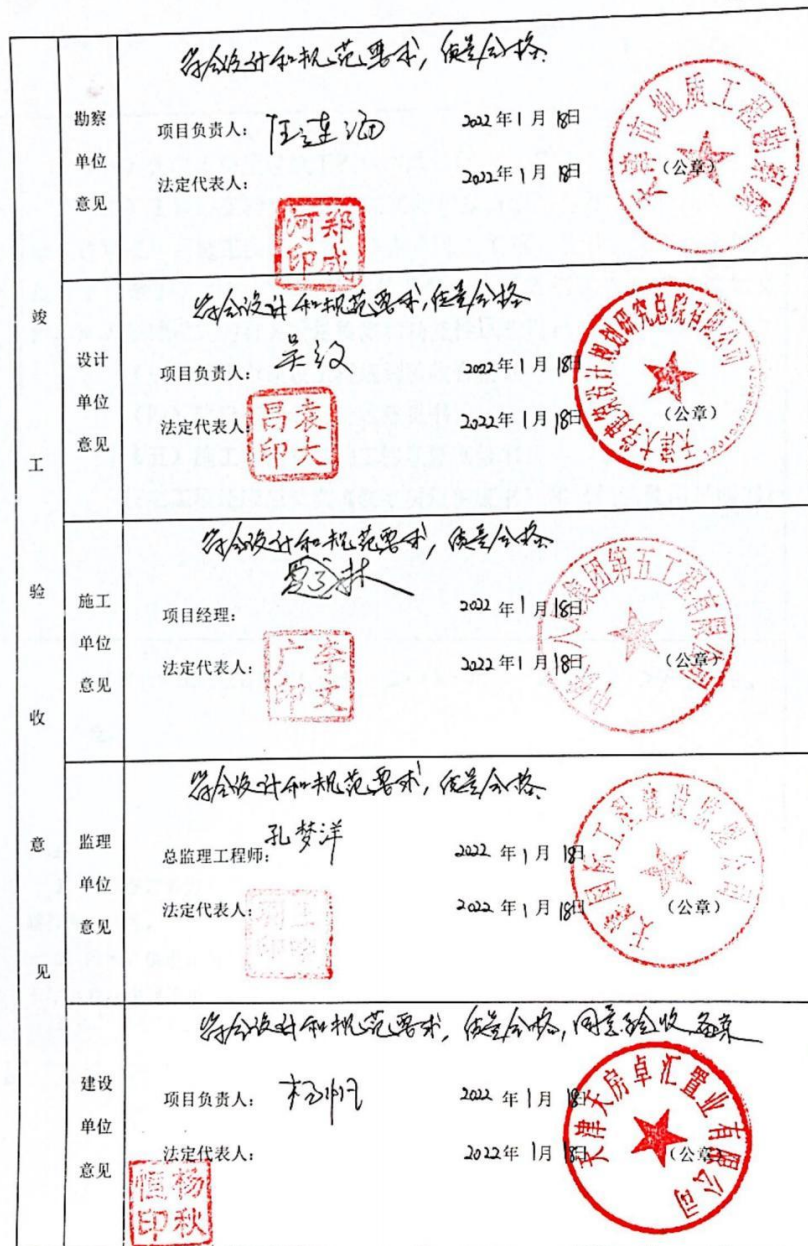 竣工验收意见
勘察单位意见
符合设计和规范要求，质量合格
项目负责人：
2022年1月18日
法定代表人：
2022年1月18日
（公章）
郑成河印
天津市地质工程勘察院
设计单位意见
符合设计和规范要求，质量合格
项目负责人：
2022年1月18日
法定代表人：
2022年1月18日
（公章）
袁大昌印
天津大学建筑设计规划研究总院有限公司
施工单位意见
符合设计和规范要求，质量合格
项目经理：
2022年1月18日
法定代表人：
2022年1月18日
（公章）
李文广印
集团第五工程有限公司
监理单位意见
符合设计和规范要求，质量合格
总监理工程师：孔梦洋
2022年1月18日
法定代表人：
2022年1月18日
（公章）
天津国际工程建设监理公司
建设单位意见
符合设计和规范要求，质量合格，同意验收备案
项目负责人：
2022年1月18日
法定代表人：
2022年1月18日
（公章）
杨秋恒印
天津天房卓汇置业有限公司